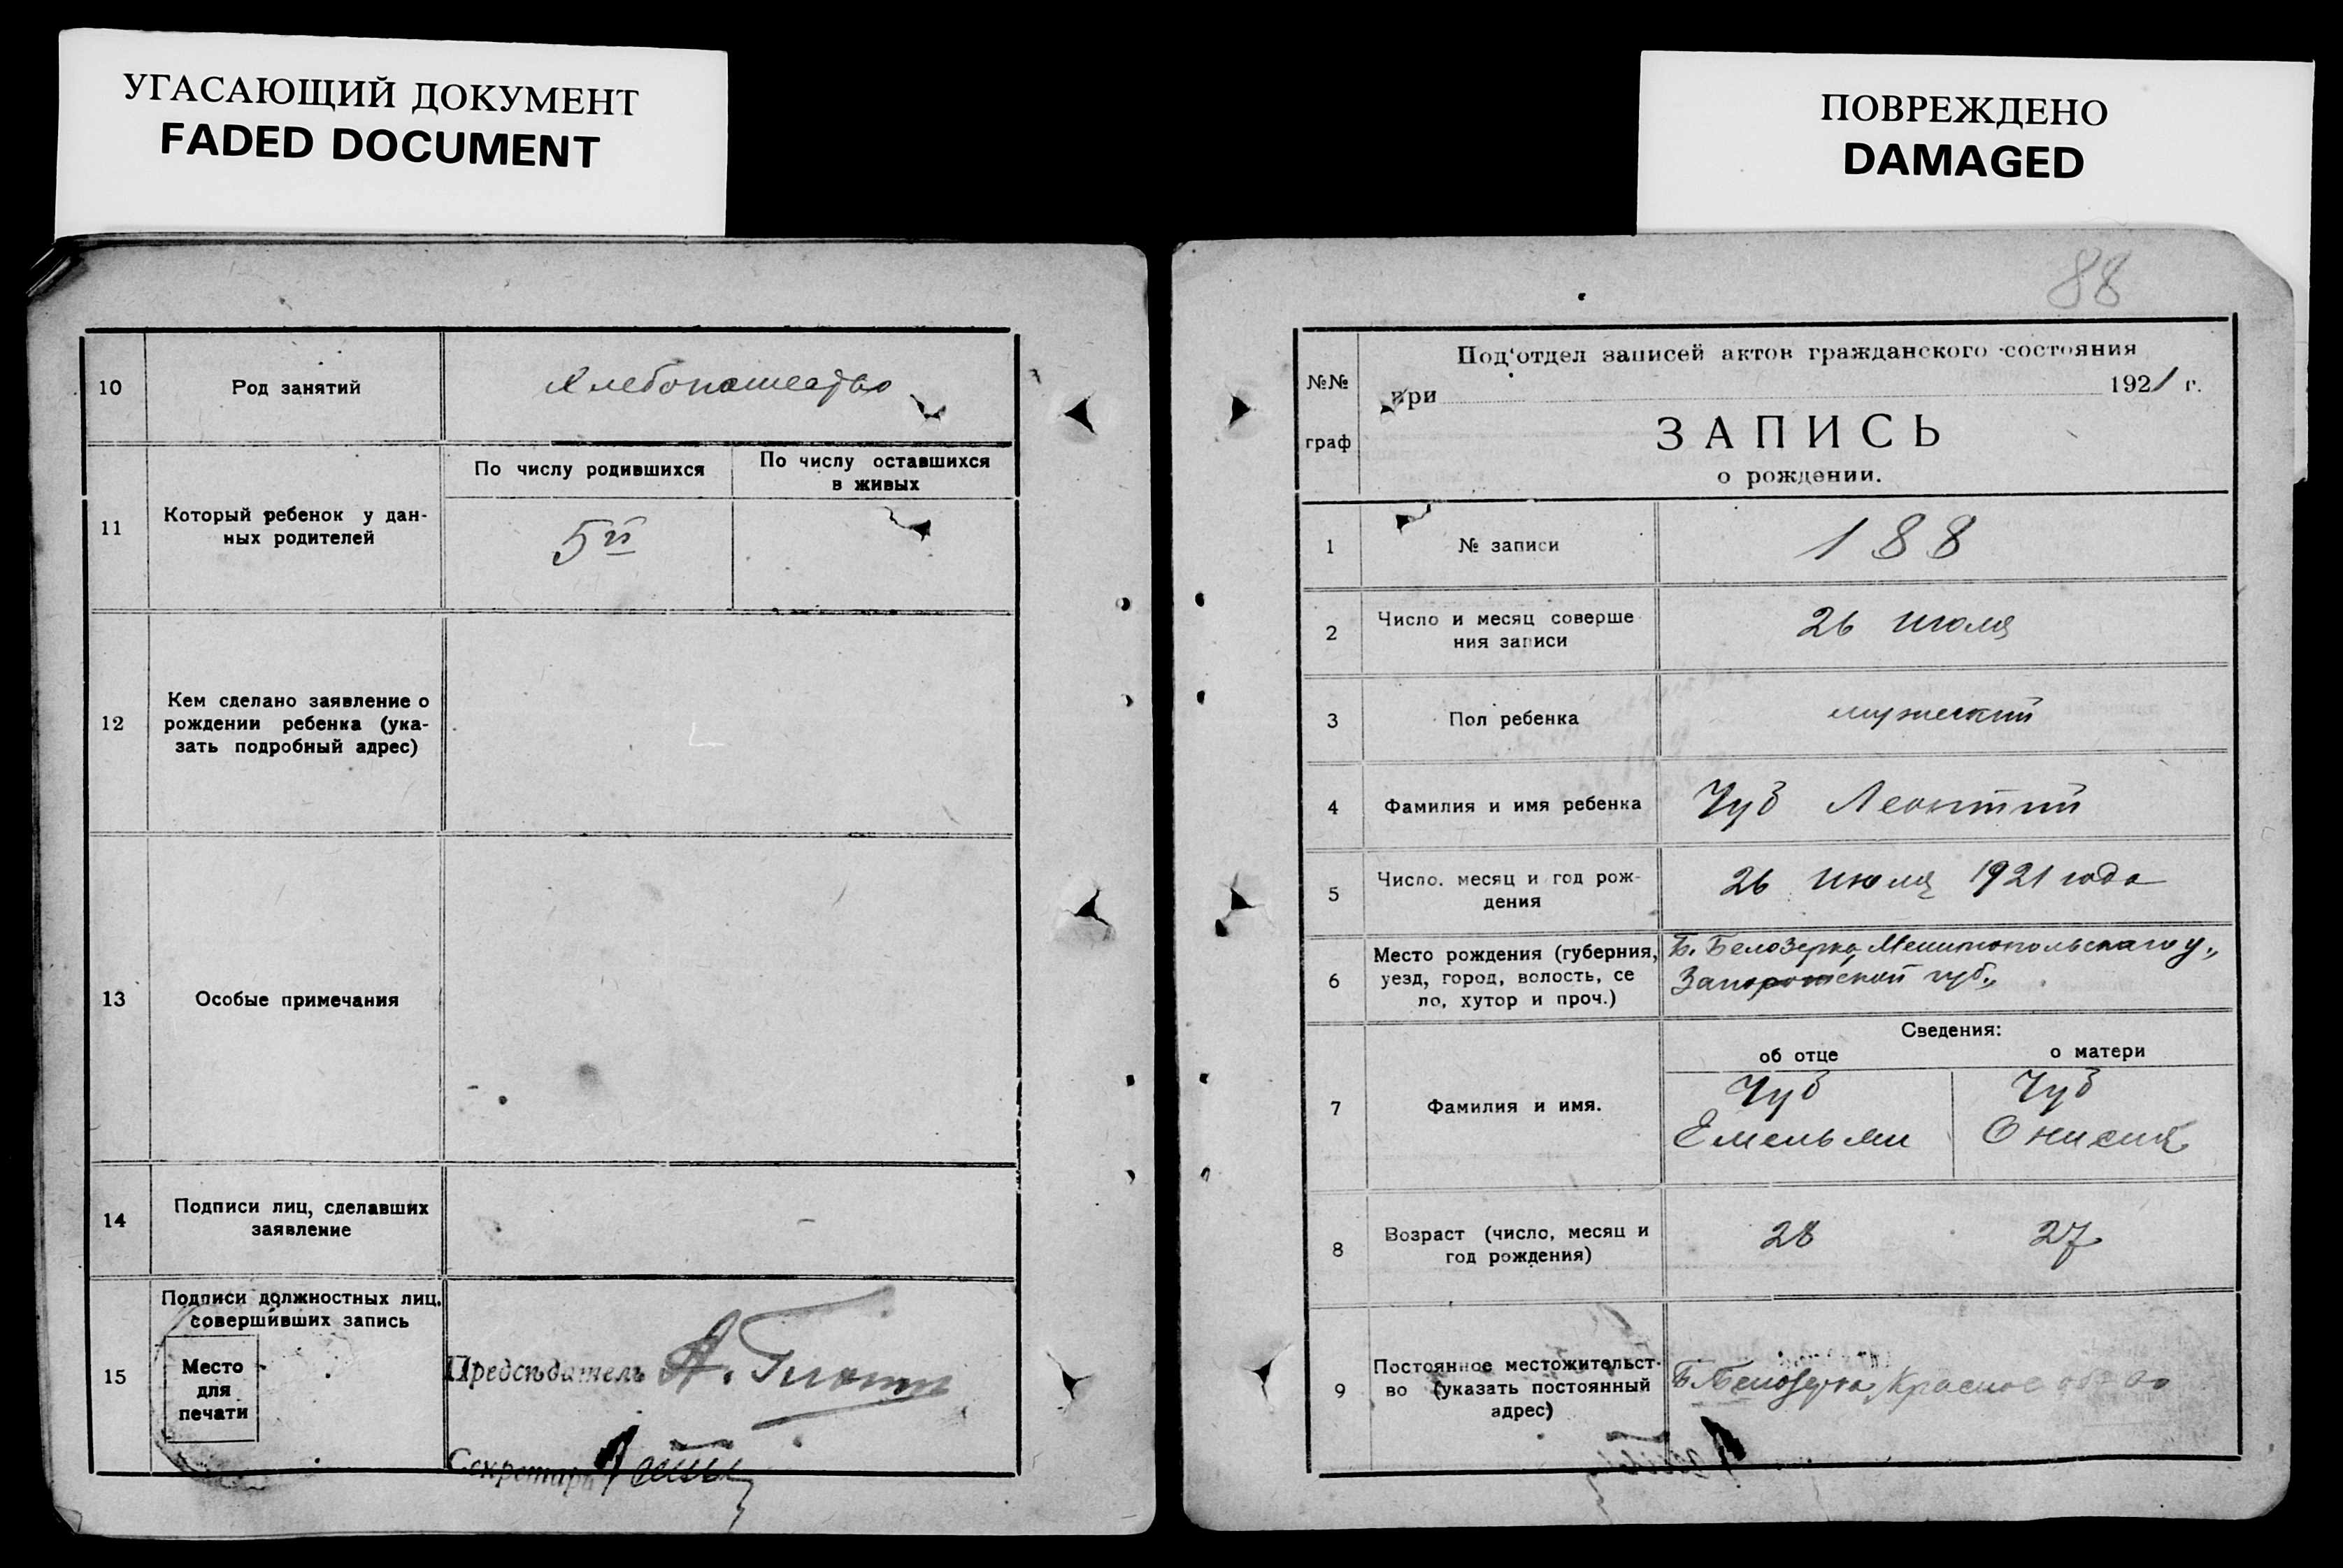 УГАСАЮЩИЙ ДОКУМЕНТ
FADED DOCUMENT
10
Род занятий
Хлебопашество
11
Который ребенок у дан-
ных родителей
По числу родившихся
По числу оставшихся
в живых
5й
12
Кем сделано заявление о
рождении ребенка (ука-
зать подробный адрес)
13
Особые примечания
14
Подписи лиц, сделавших
заявление
15
Подписи должностных лиц,
совершивших запись
Место
для
печати
Предсѣдатель А.
Секретарь
ПОВРЕЖДЕНО
DAMAGED
88
№№
граф
Под'отдел записей актов гражданского состояния
при 1921 г.
ЗАПИСЬ
о рождении.
1
№ записи
188
2
Число и месяц соверше
ния записи
26 июля
3
Пол ребенка
мужеский
4
Фамилия и имя ребенка
Чуб Леонтий
5
Число. месяц и год рож-
дения
26 июля 1921 года
6
Место рождения (губерния,
уезд, город, волость, се
ло, хутор и проч.)
Б. Белозерка, Мелитопольскаго у.,
Запорожской губ.,
Сведения:
об отце
о матери
7
Фамилия и имя.
Чуб
Емельян
Чуб
Онисия
8
Возраст (число, месяц и
год рождения)
28
27
9
Постоянное местожительст-
во (указать постоянный
адрес)
Б. Белозерка, Красное